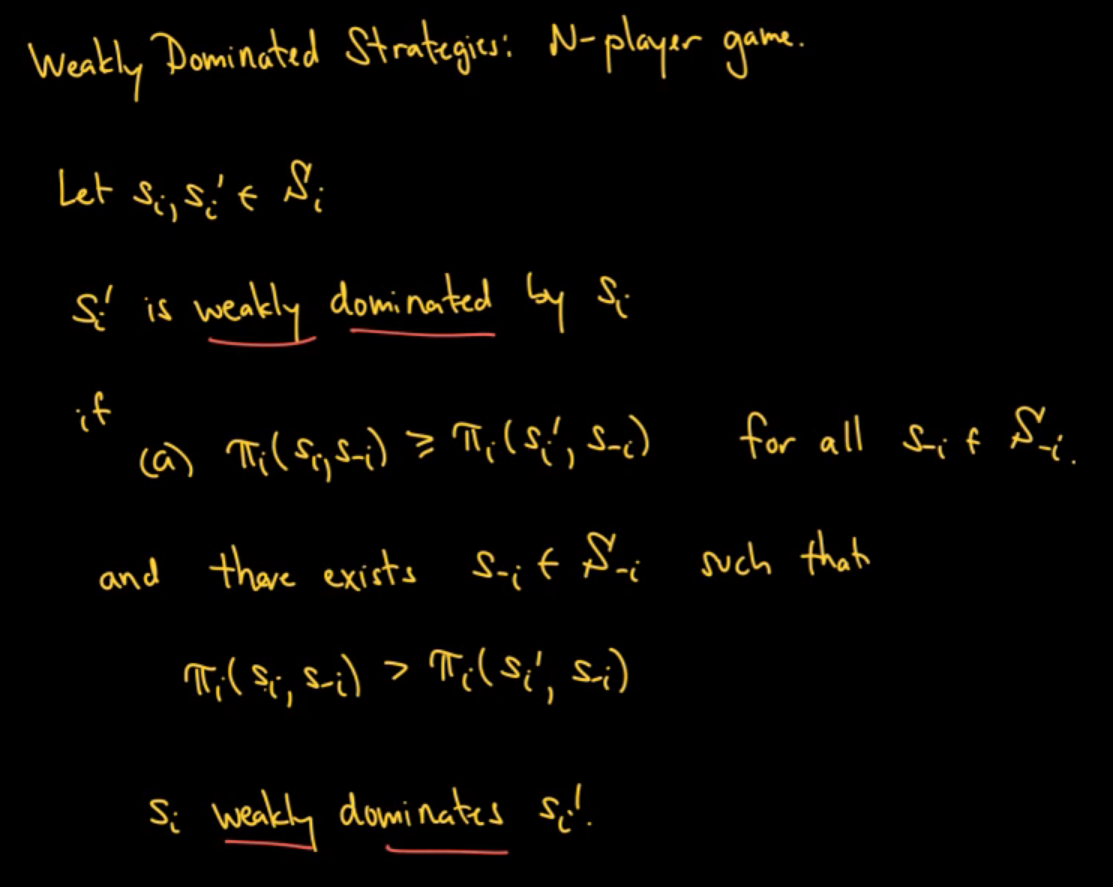 Weakly Dominated Strategies: N-player game.
Let sᵢ, sᵢ' ∈ Sᵢ
sᵢ' is weakly dominated by sᵢ
if
(a) πᵢ(sᵢ, s₋ᵢ) ≥ πᵢ(sᵢ', s₋ᵢ) for all s₋ᵢ ∈ S₋ᵢ.
and there exists s₋ᵢ ∈ S₋ᵢ such that
πᵢ(sᵢ, s₋ᵢ) > πᵢ(sᵢ', s₋ᵢ)
sᵢ weakly dominates sᵢ'.